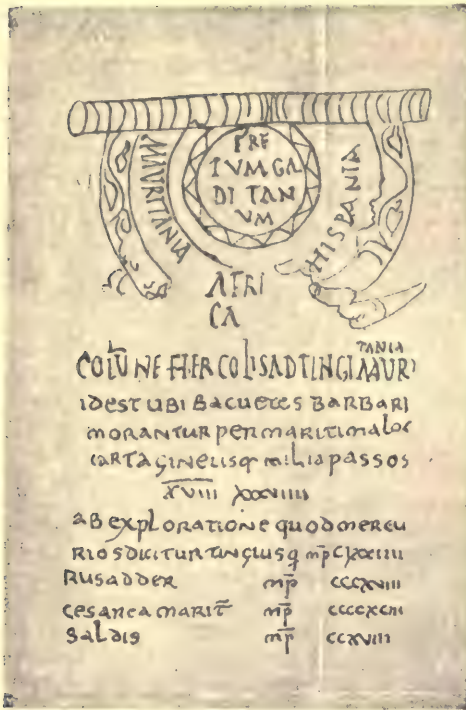 FRE
TVMGA
DITAN
VM
MAURITANIA
HISPANIA
AFRI
CA
TANIA
COLUNE HERCOLIS AD TINGI MAURI
IDEST UBI BACUETES BARBARI
MORANTUR PER MARITIMA LOC
CARTAGINEUSQ MILIA PASSOS
XVIII XXXVIIII
AB EXPLORATIONE QUOD MERCU
RIOS DICITUR TINGIUSQ MP̄ CLXXIIII
RUSADDER MP̄ CCCXVIII
CESAREA MARIT̄ MP̄ CCCCXCIII
SALDIS MP̄ CCXVIII